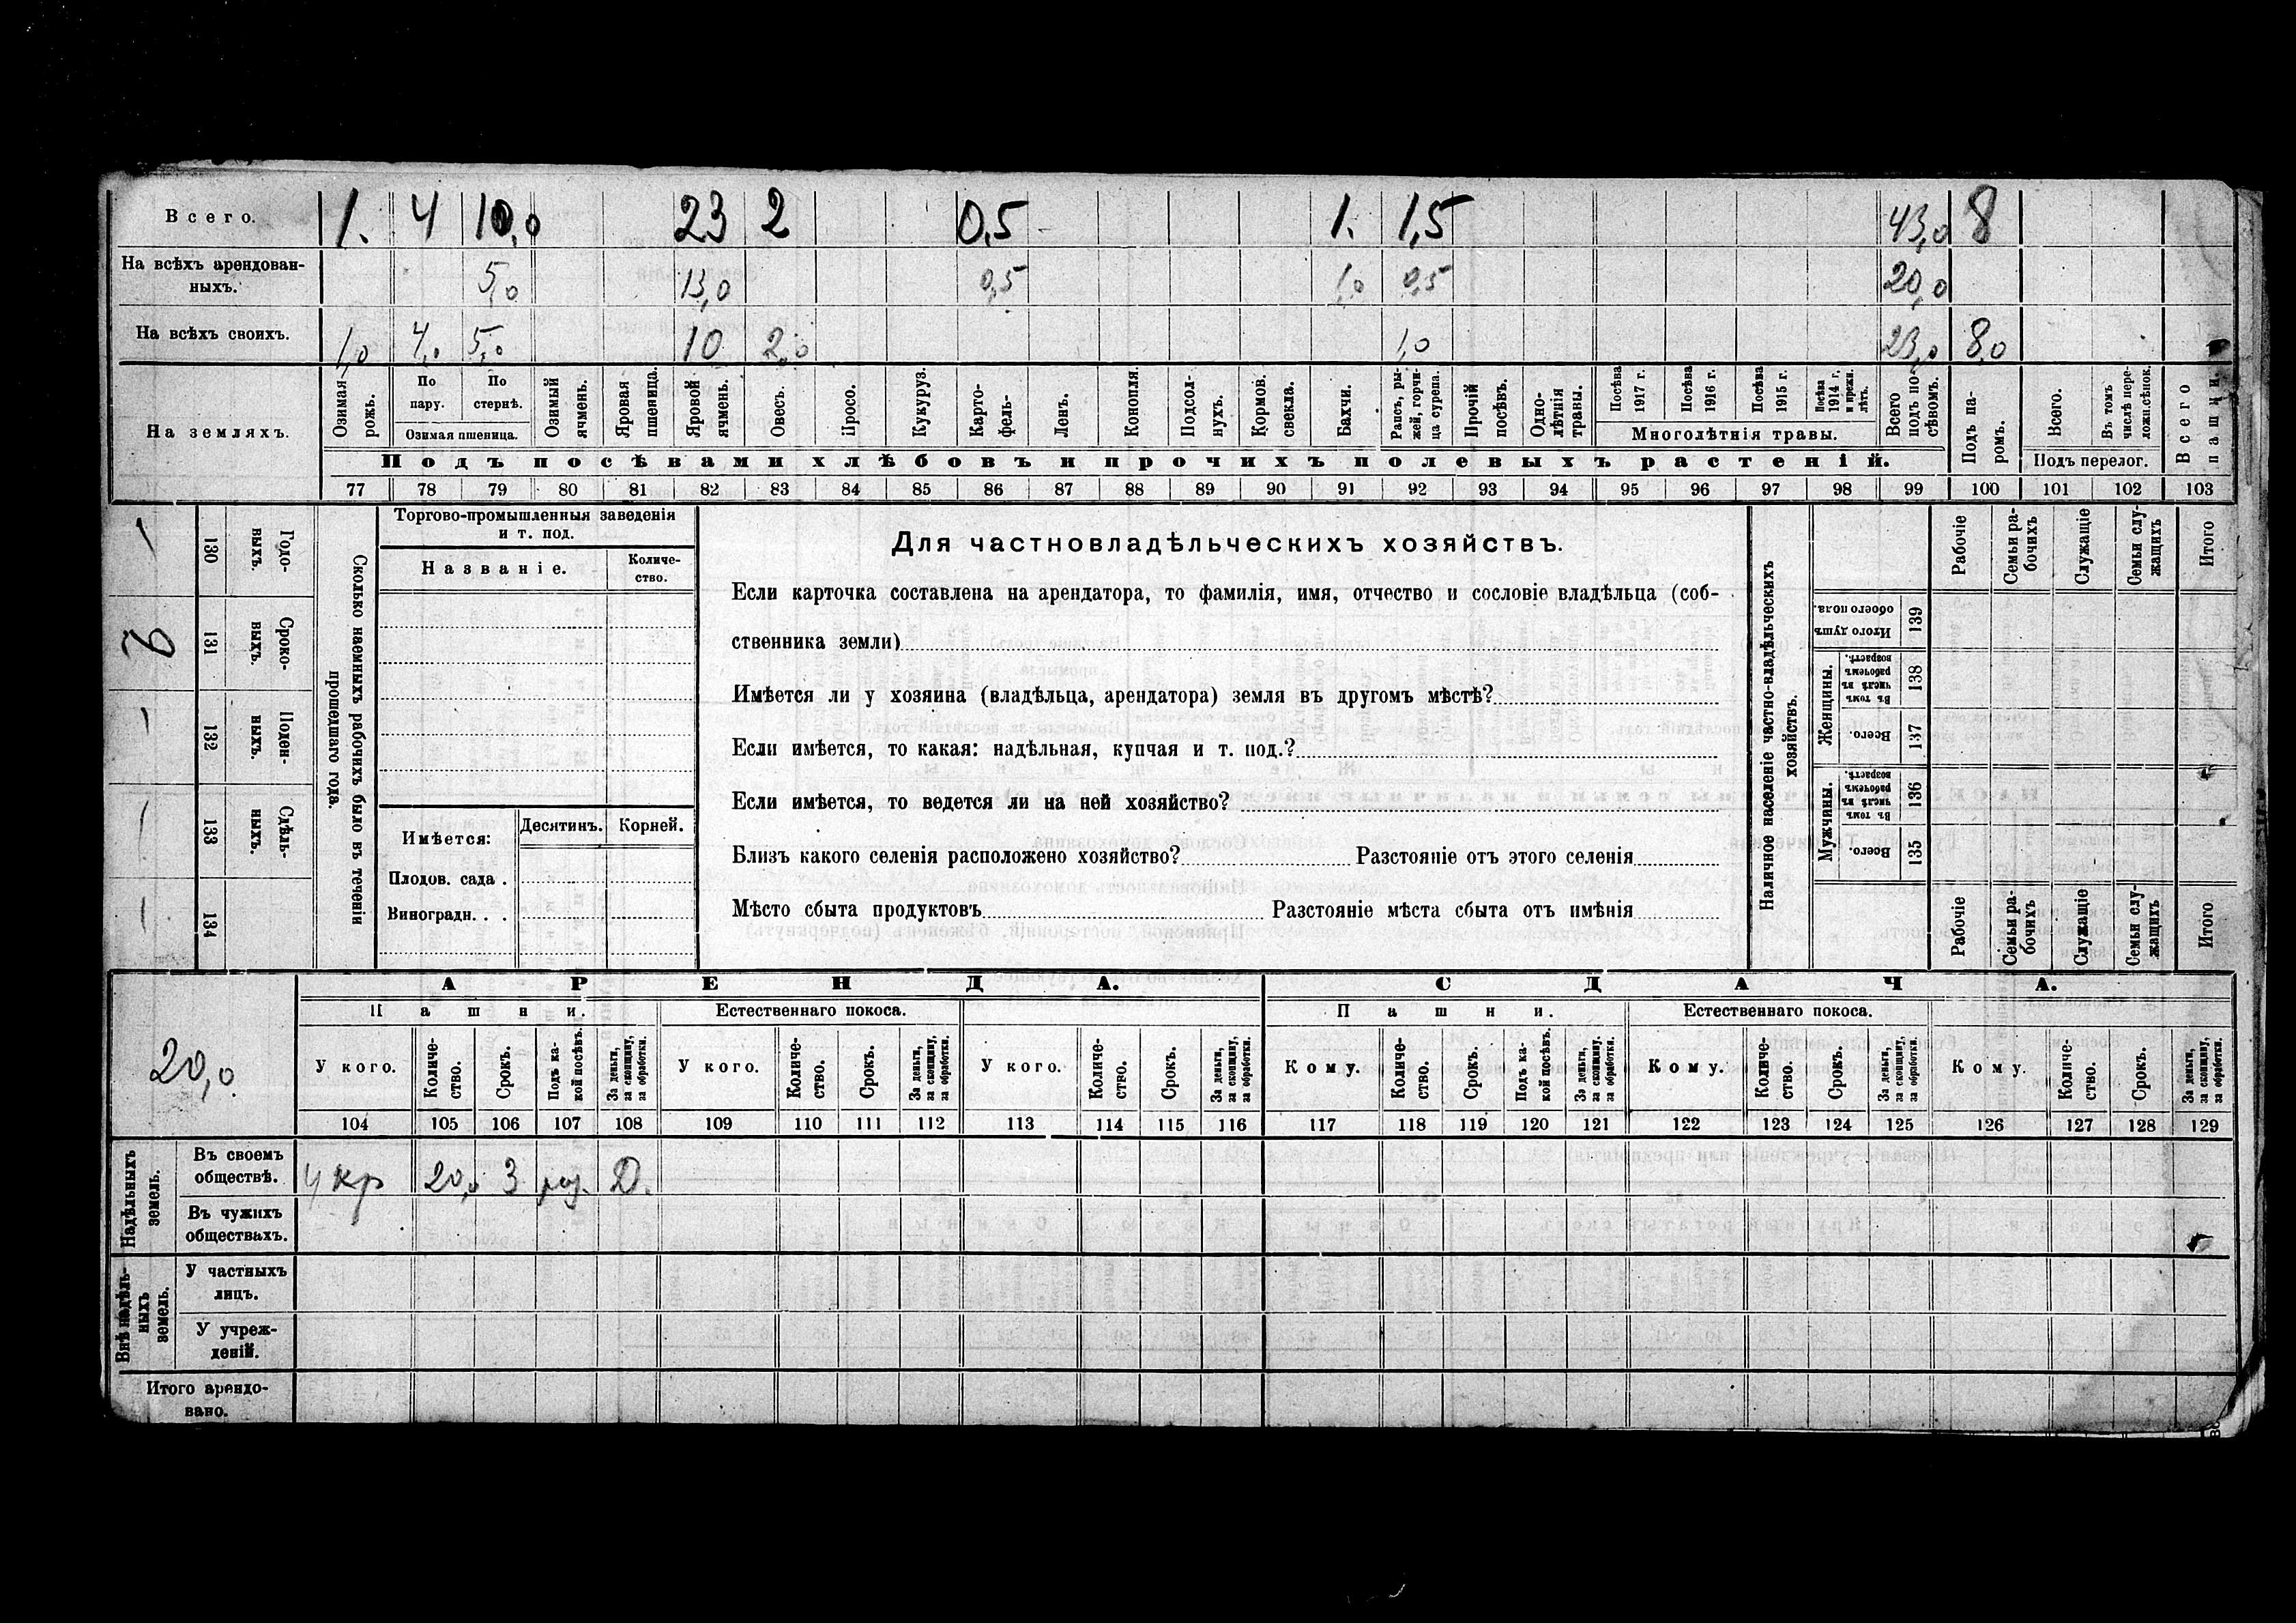 Всего. 1. 4 10,0 23 2 0,5 1. 1,5 43,0 8
На всѣхъ арендованныхъ. 5,0 13,0 0,5 1,0 0,5 20,0
На всѣхъ своихъ. 1,0 4,0 5,0 10 2,0 1,0 23,0 8,0
На земляхъ.
Озимая рожь.
По пару.
По стернѣ.
Озимая пшеница.
Озимый ячмень.
Яровая пшеница.
Яровой ячмень.
Овесъ.
Просо.
Кукуруз.
Картофель.
Ленъ.
Конопля.
Подсолнухъ.
Кормов. свекла.
Бахчи.
Рапсъ, рыжей, горчица сурепа.
Прочій посѣвъ.
Однолѣтнія травы.
Посѣва 1917 г.
Посѣва 1916 г.
Посѣва 1915 г.
Посѣва 1914 г. и прежн. лѣтъ.
Многолѣтнія травы.
Всего подъ посѣвомъ.
Подъ паромъ.
Всего.
Въ томъ числѣ переложн. сѣнок.
Подъ перелог.
Всего пашни.
Подъ посѣвами хлѣбовъ и прочихъ полевыхъ растеній.
77 78 79 80 81 82 83 84 85 86 87 88 89 90 91 92 93 94 95 96 97 98 99 100 101 102 103
130 Годовыхъ.
131 Сроковыхъ.
132 Поденныхъ.
133 Сдѣльныхъ.
134
Сколько наемныхъ рабочихъ было въ теченіи прошедшаго года.
Торгово-промышленныя заведенія
и т. под.
Названіе. Количество.
Имѣется: Десятинъ. Корней.
Плодов. сада .
Виноградн. . .
Для частновладѣльческихъ хозяйствъ.
Если карточка составлена на арендатора, то фамилія, имя, отчество и сословіе владѣльца (соб-
ственника земли)
Имѣется ли у хозяина (владѣльца, арендатора) земля въ другомъ мѣстѣ?
Если имѣется, то какая: надѣльная, купчая и т. под.?
Если имѣется, то ведется ли на ней хозяйство?
Близъ какого селенія расположено хозяйство? Разстояніе отъ этого селенія
Мѣсто сбыта продуктовъ Разстояніе мѣста сбыта отъ имѣнія
Наличное населеніе частно-владѣльческихъ хозяйствъ.
Рабочіе Семьи рабочихъ Служащіе Семьи служащихъ Итого
Итого душъ обоего пола. 139
Женщины.
Въ томъ числѣ въ рабочемъ возрастѣ. 138
Всего. 137
Мужчины.
Въ томъ числѣ въ рабочемъ возрастѣ. 136
Всего. 135
Рабочіе Семьи рабочихъ Служащіе Семьи служащихъ Итого
20,0
АРЕНДА. СДАЧА.
Пашни. Естественнаго покоса. Пашни. Естественнаго покоса.
У кого. Количество. Срокъ. Подъ какой посѣвъ. За деньги, за скопщину, за обработки.
У кого. Количество. Срокъ. За деньги, за скопщину, за обработки.
У кого. Количество. Срокъ. За деньги, за скопщину, за обработки.
Кому. Количество. Срокъ. Подъ какой посѣвъ. За деньги, за скопщину, за обработки.
Кому. Количество. Срокъ. За деньги, за скопщину, за обработки.
Кому. Количество. Срокъ. За деньги, за скопщину, за обработки.
104 105 106 107 108 109 110 111 112 113 114 115 116 117 118 119 120 121 122 123 124 125 126 127 128 129
Надѣльныхъ земель.
Въ своемъ обществѣ. у кр 20,0 3 Д.
Въ чужихъ обществахъ.
Внѣ надѣльныхъ земель.
У частныхъ лицъ.
У учрежденій.
Итого арендовано.